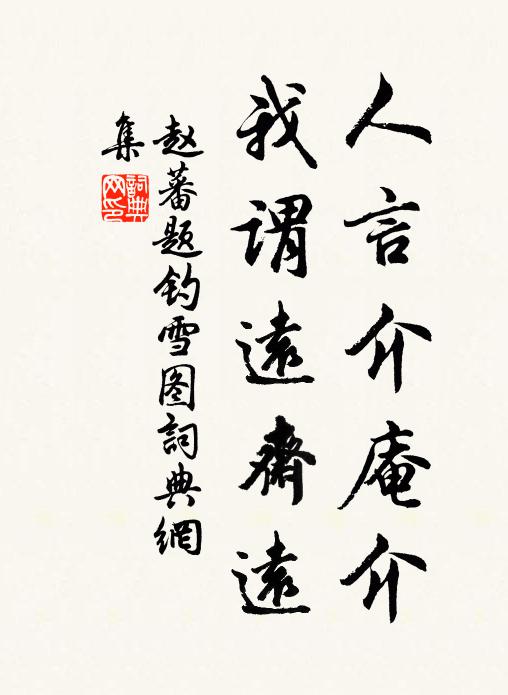 人言介庵介
我谓遠齋遠
赵蕃题钓雪图詞典網
集
詞典
网印